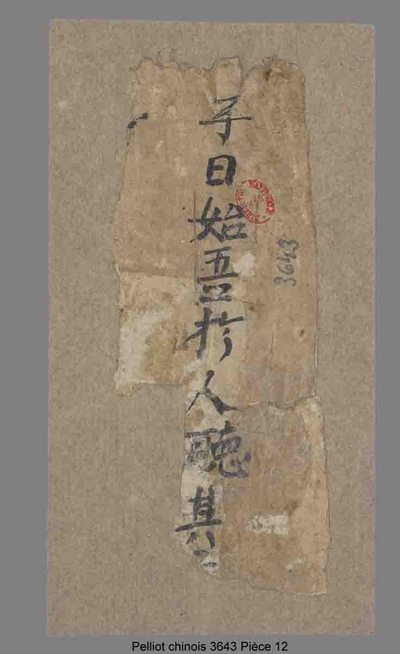 子曰始吾於人聽其
3643
Pelliot chinois 3643 Pièce 12